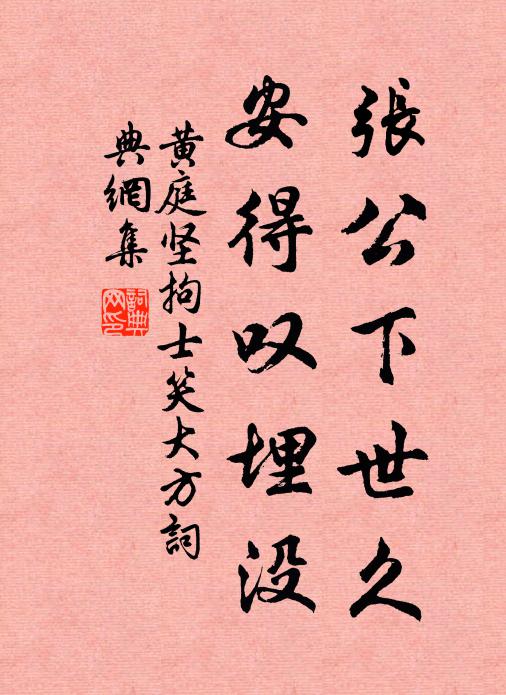 張公下世久
安得叹埋没
黄庭坚拘士笑大方詞
典網集
詞典
网印